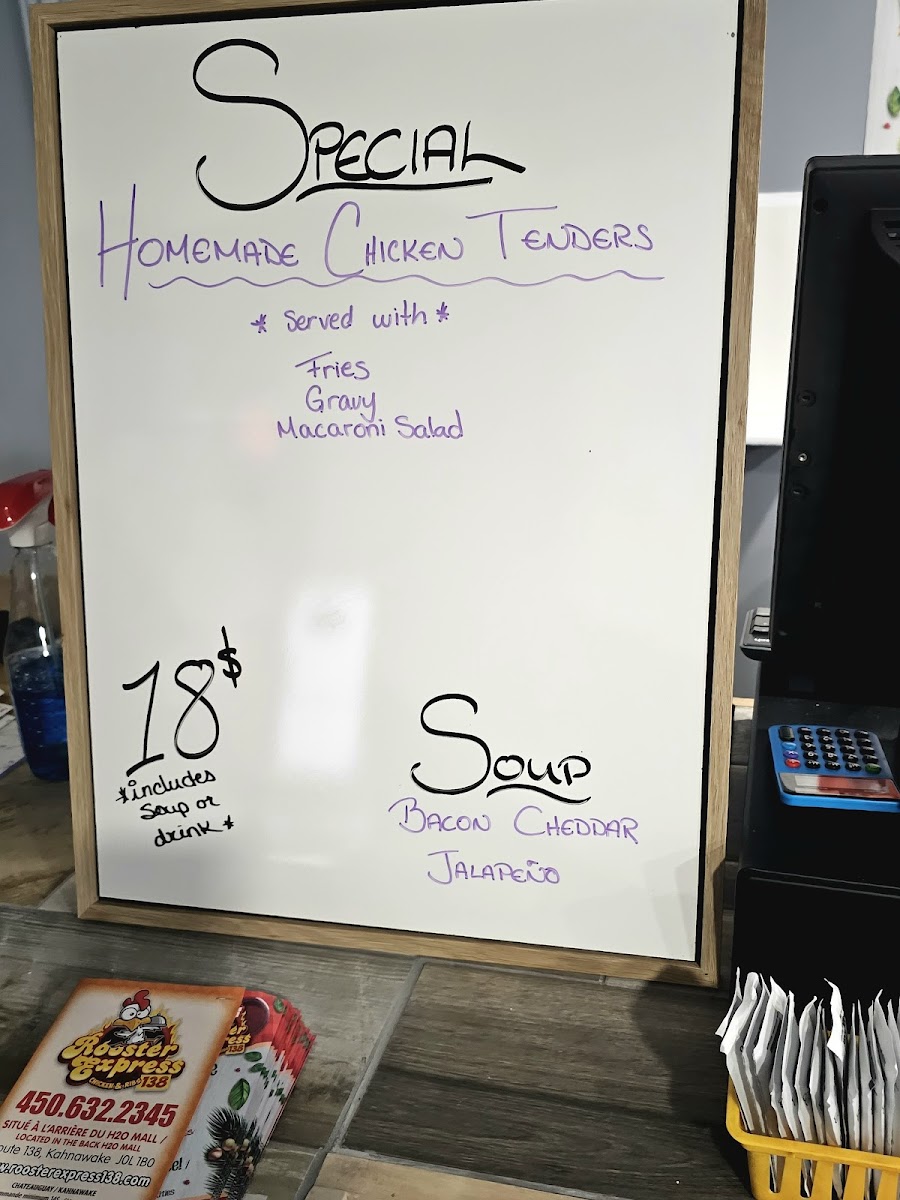 SPECIAL
HOMEMADE CHICKEN TENDERS
* Served with *
Fries
Gravy
Macaroni Salad
18$
*includes
Soup or
drink*
SOUP
BACON CHEDDAR
JALAPEÑO
Rooster
Express
CHICKEN & RIBS 138
450.632.2345
SITUÉ À L'ARRIÈRE DU H2O MALL /
LOCATED IN THE BACK H2O MALL
oute 138, Kahnawake J0L 1B0
w.roosterexpress138.com
CHATEAUGUAY/KAHNAWAKE